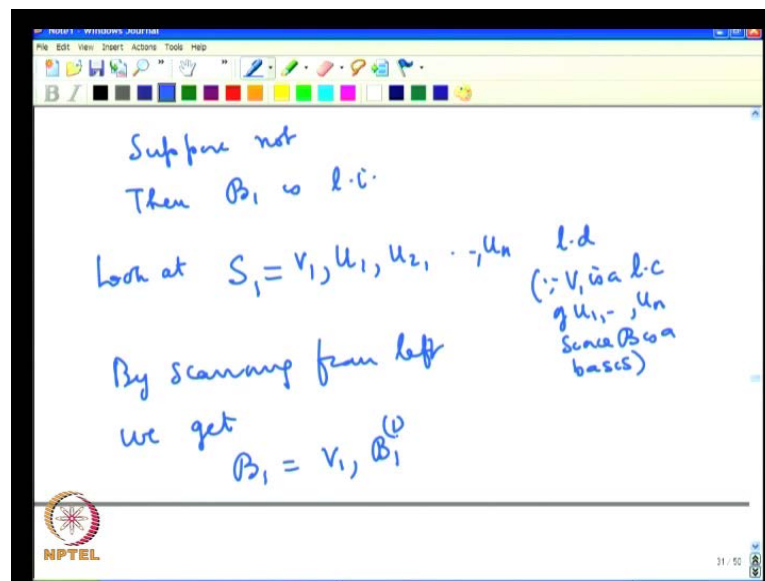 Note1 - Windows Journal
File Edit View Insert Actions Tools Help
B I
Suppose not
Then B₁ is l.i.
Look at S₁ = v₁, u₁, u₂, ..., uₙ l.d
(∵ v₁ is a l.c
of u₁, -, uₙ
since B is a
basis)
By scanning from left
we get
B₁ = v₁, B₁⁽¹⁾
NPTEL
31 / 50